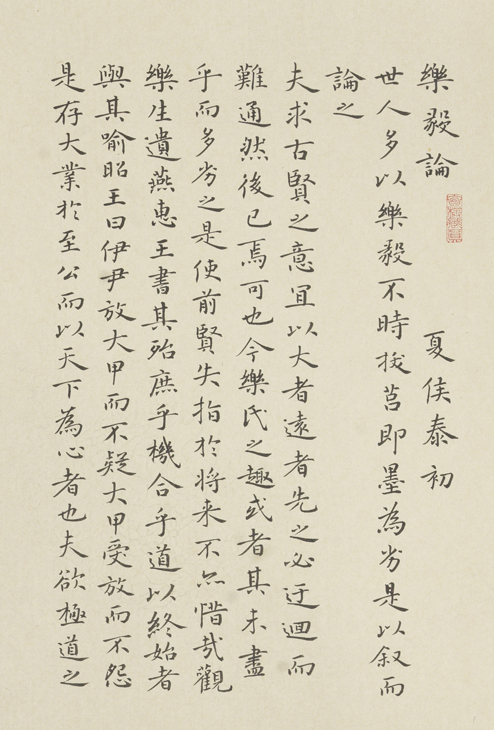 樂毅論 夏侯泰初
世人多以樂毅不時拔莒即墨為劣是以叙而
論之
夫求古賢之意宜以大者遠者先之必迂迴而
難通然後已焉可也今樂氏之趣或者其未盡
乎而多劣之是使前賢失指於将来不亦惜哉觀
樂生遺燕惠王書其殆庶乎機合乎道以終始者
與其喻昭王曰伊尹放大甲而不疑大甲受放而不怨
是存大業於至公而以天下為心者也夫欲極道之